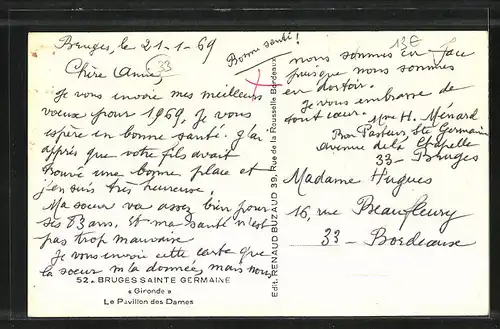 Bruges, le 21-1-69
Bonne santé!
13€
33
Chère Amie,
Je vous envoie mes meilleurs
voeux pour 1969, Je vous
espère en bonne santé. J'ai
appris que votre fils avait
trouvé une bonne place et
j'en suis très heureuse.
Ma soeur va assez bien pour
ses 83 ans. Et ma santé n'est
pas trop mauvaise
Je vous envoie cette carte que
la soeur m'a donnée, mais nous
nous sommes en face
puisque nous sommes
en dortoir.
Je vous embrasse de
tout coeur.
Mme H. Ménard
Pasteur, Ste Germaine
avenue de la Chapelle
33 - Bruges
Madame Hugues
16, rue Beaufleury
33 - Bordeaux
Edit. RENAUD BUZAUD 39, Rue de la Rousselle Bordeaux
52. BRUGES SAINTE GERMAINE
« Gironde »
Le Pavillon des Dames